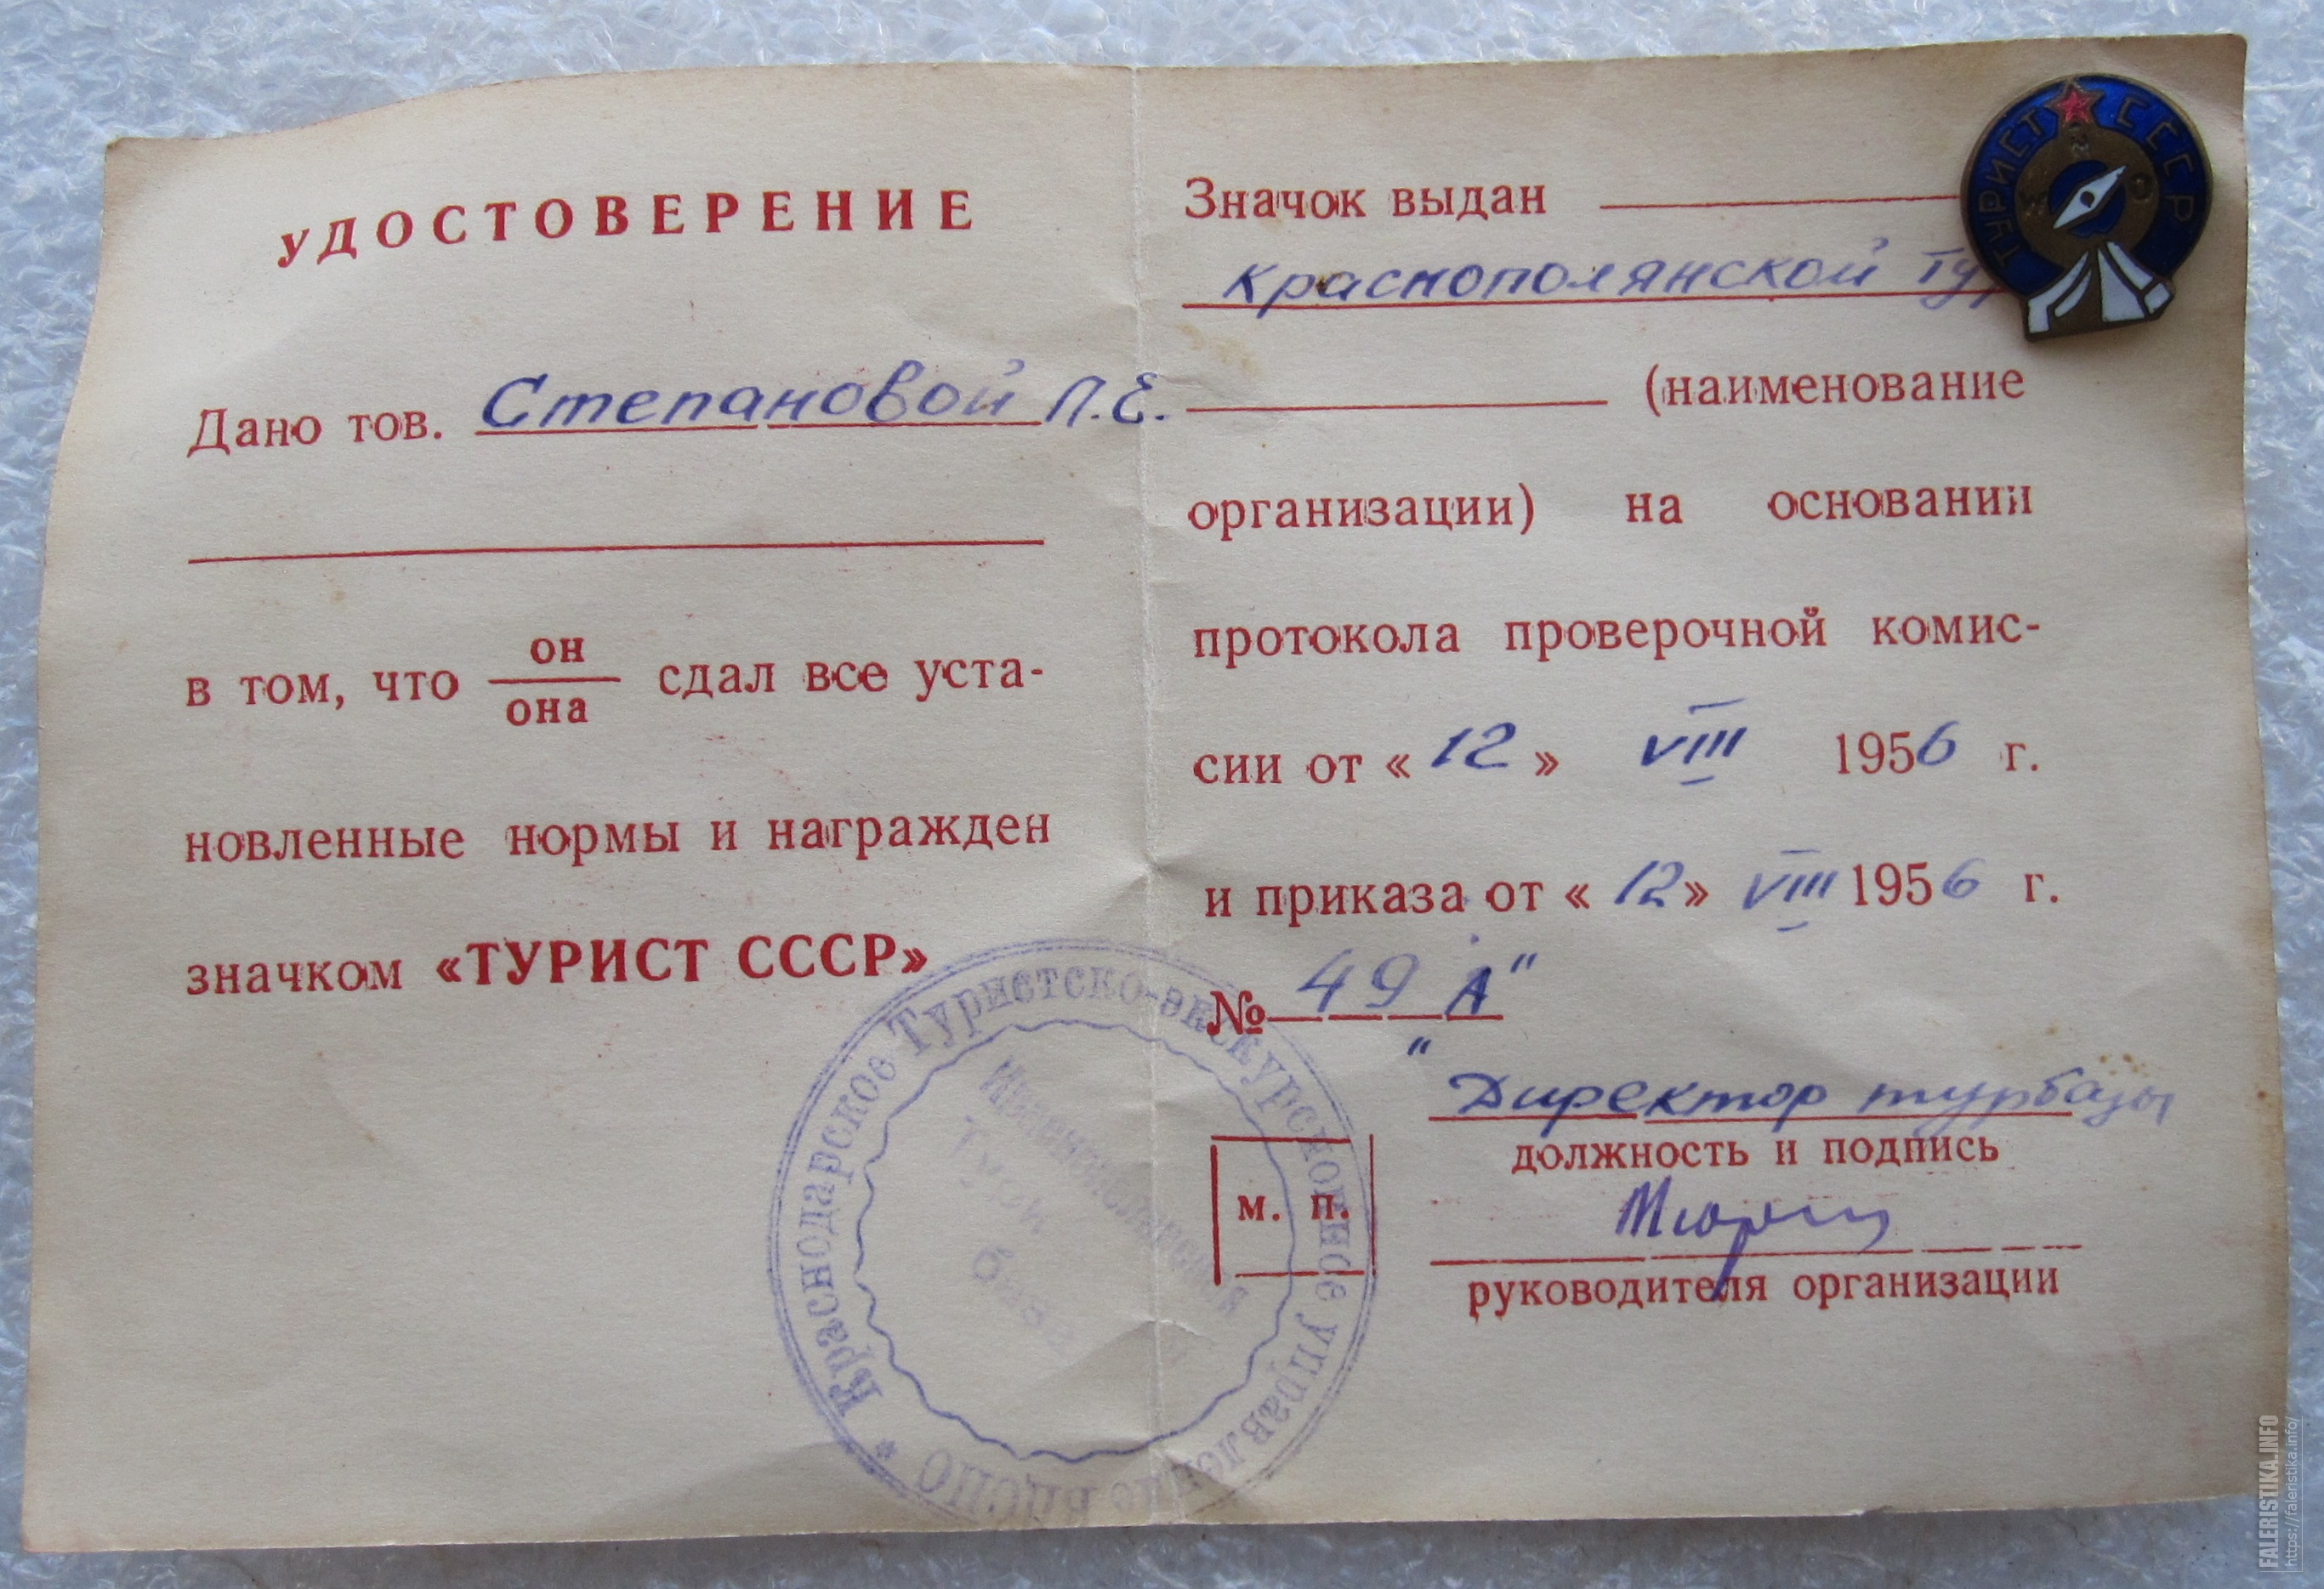 УДОСТОВЕРЕНИЕ
Дано тов. Степановой Л.Е.
в том, что он
она сдал все уста-
новленные нормы и награжден
значком «ТУРИСТ СССР»
Значок выдан
Краснополянской Ту
(наименование
организации) на основании
протокола проверочной комис-
сии от «12» VIII 1956 г.
и приказа от «12» VIII 1956 г.
№ 49 "А"
Директор турбазы
должность и подпись
м. п.
руководителя организации
* Краснодарское Туристско-экскурсионное управление ВЦСПС
Краснополянская
Турист
база
ТУРИСТ СССР
FALERISTIKA.INFO
https://faleristika.info/